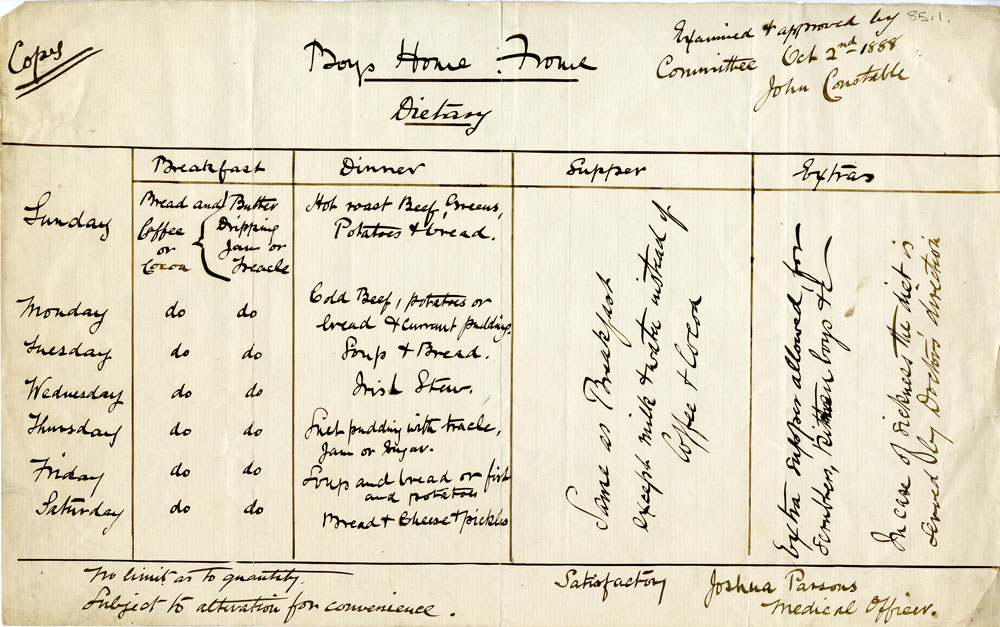 Copy
Boys Home Frome
Dietary
85.1.
Examined & approved by
Committee Oct 2nd 1888
John Constable
Breakfast Dinner Supper Extras
Sunday
Bread and Butter
Coffee Dripping
or Jam or
Cocoa Treacle
Hot roast Beef, Greens,
Potatoes & bread.
Monday do do
Cold Beef, potatoes or
bread & currant pudding.
Tuesday do do Soup & Bread.
Wednesday do do Irish Stew.
Thursday do do
Suet pudding with treacle,
Jam or Sugar.
Friday do do
Soup and bread or fish
and potatoes
Saturday do do Bread & Cheese & pickles
Same as Breakfast
except milk & water instead of
Coffee & Cocoa
Extra Supper allowed for
Scrubbers, Kitchen boys &c
In case of sickness the diet is
served by Doctor's direction
No limit as to quantity.
Subject to alteration for convenience.
Satisfactory
Joshua Parsons
Medical Officer.